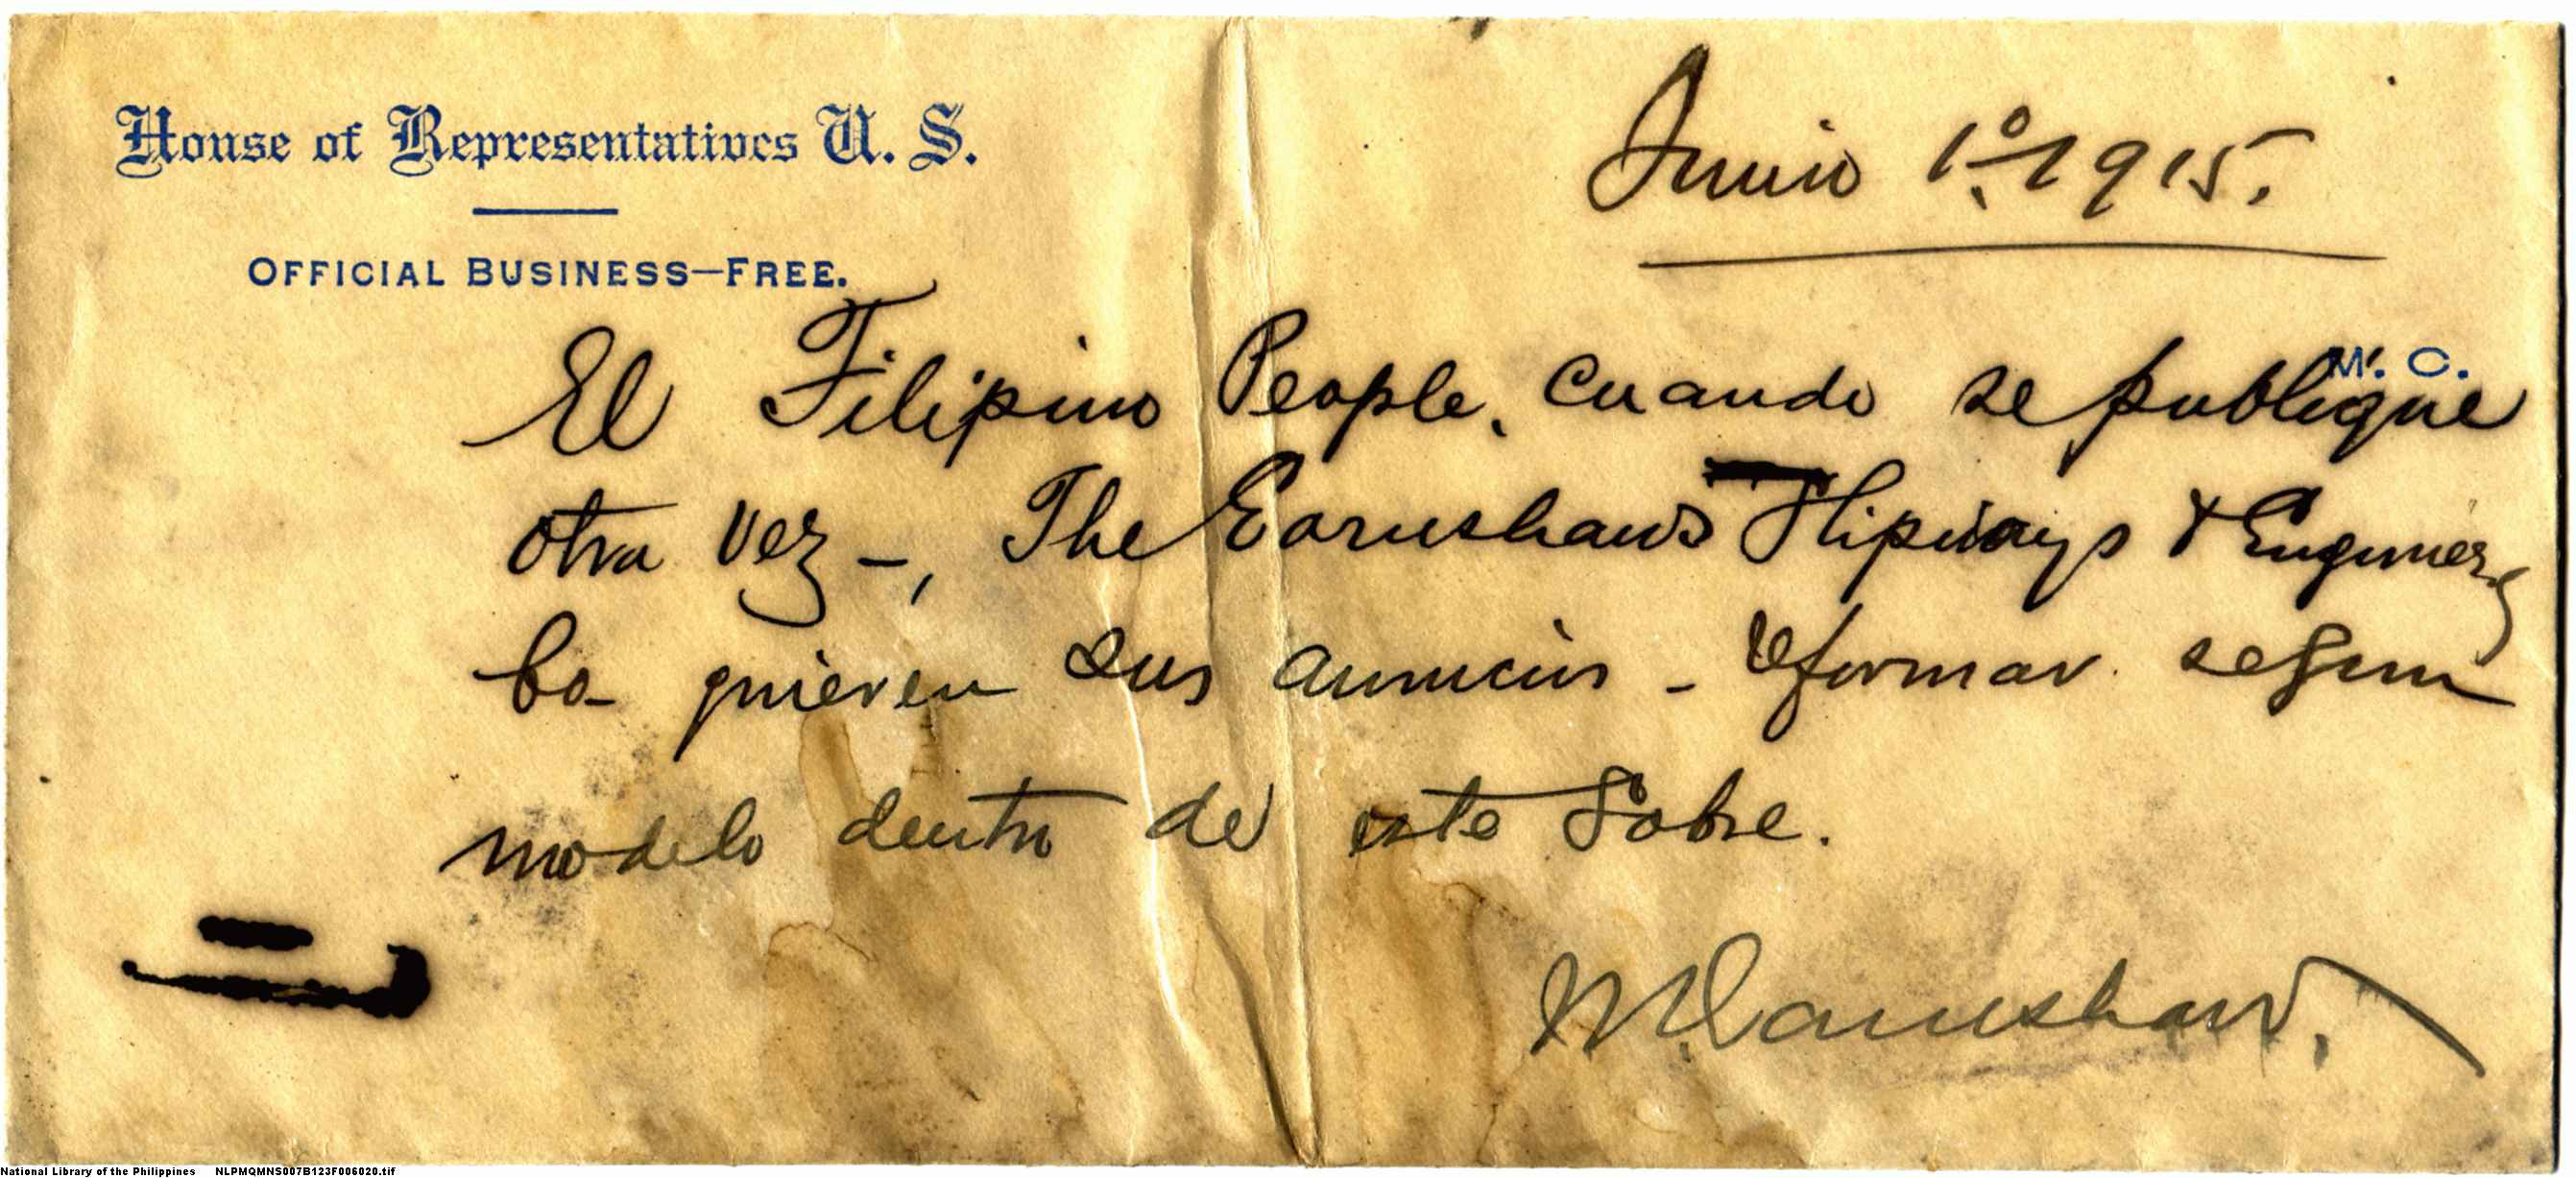 House of Representatives U. S.
OFFICIAL BUSINESS—FREE.
Junio 1º. 1915.
M. C.
El Filipino People, cuando se publique
otra vez -, The Earnshaws Slipways & Engineer
Co- quieren sus anuncios - reformar segun
modelo dentro de este Sobre.
M. Earnshaw.
National Library of the Philippines NLPMQMNS007B123F006020.tif